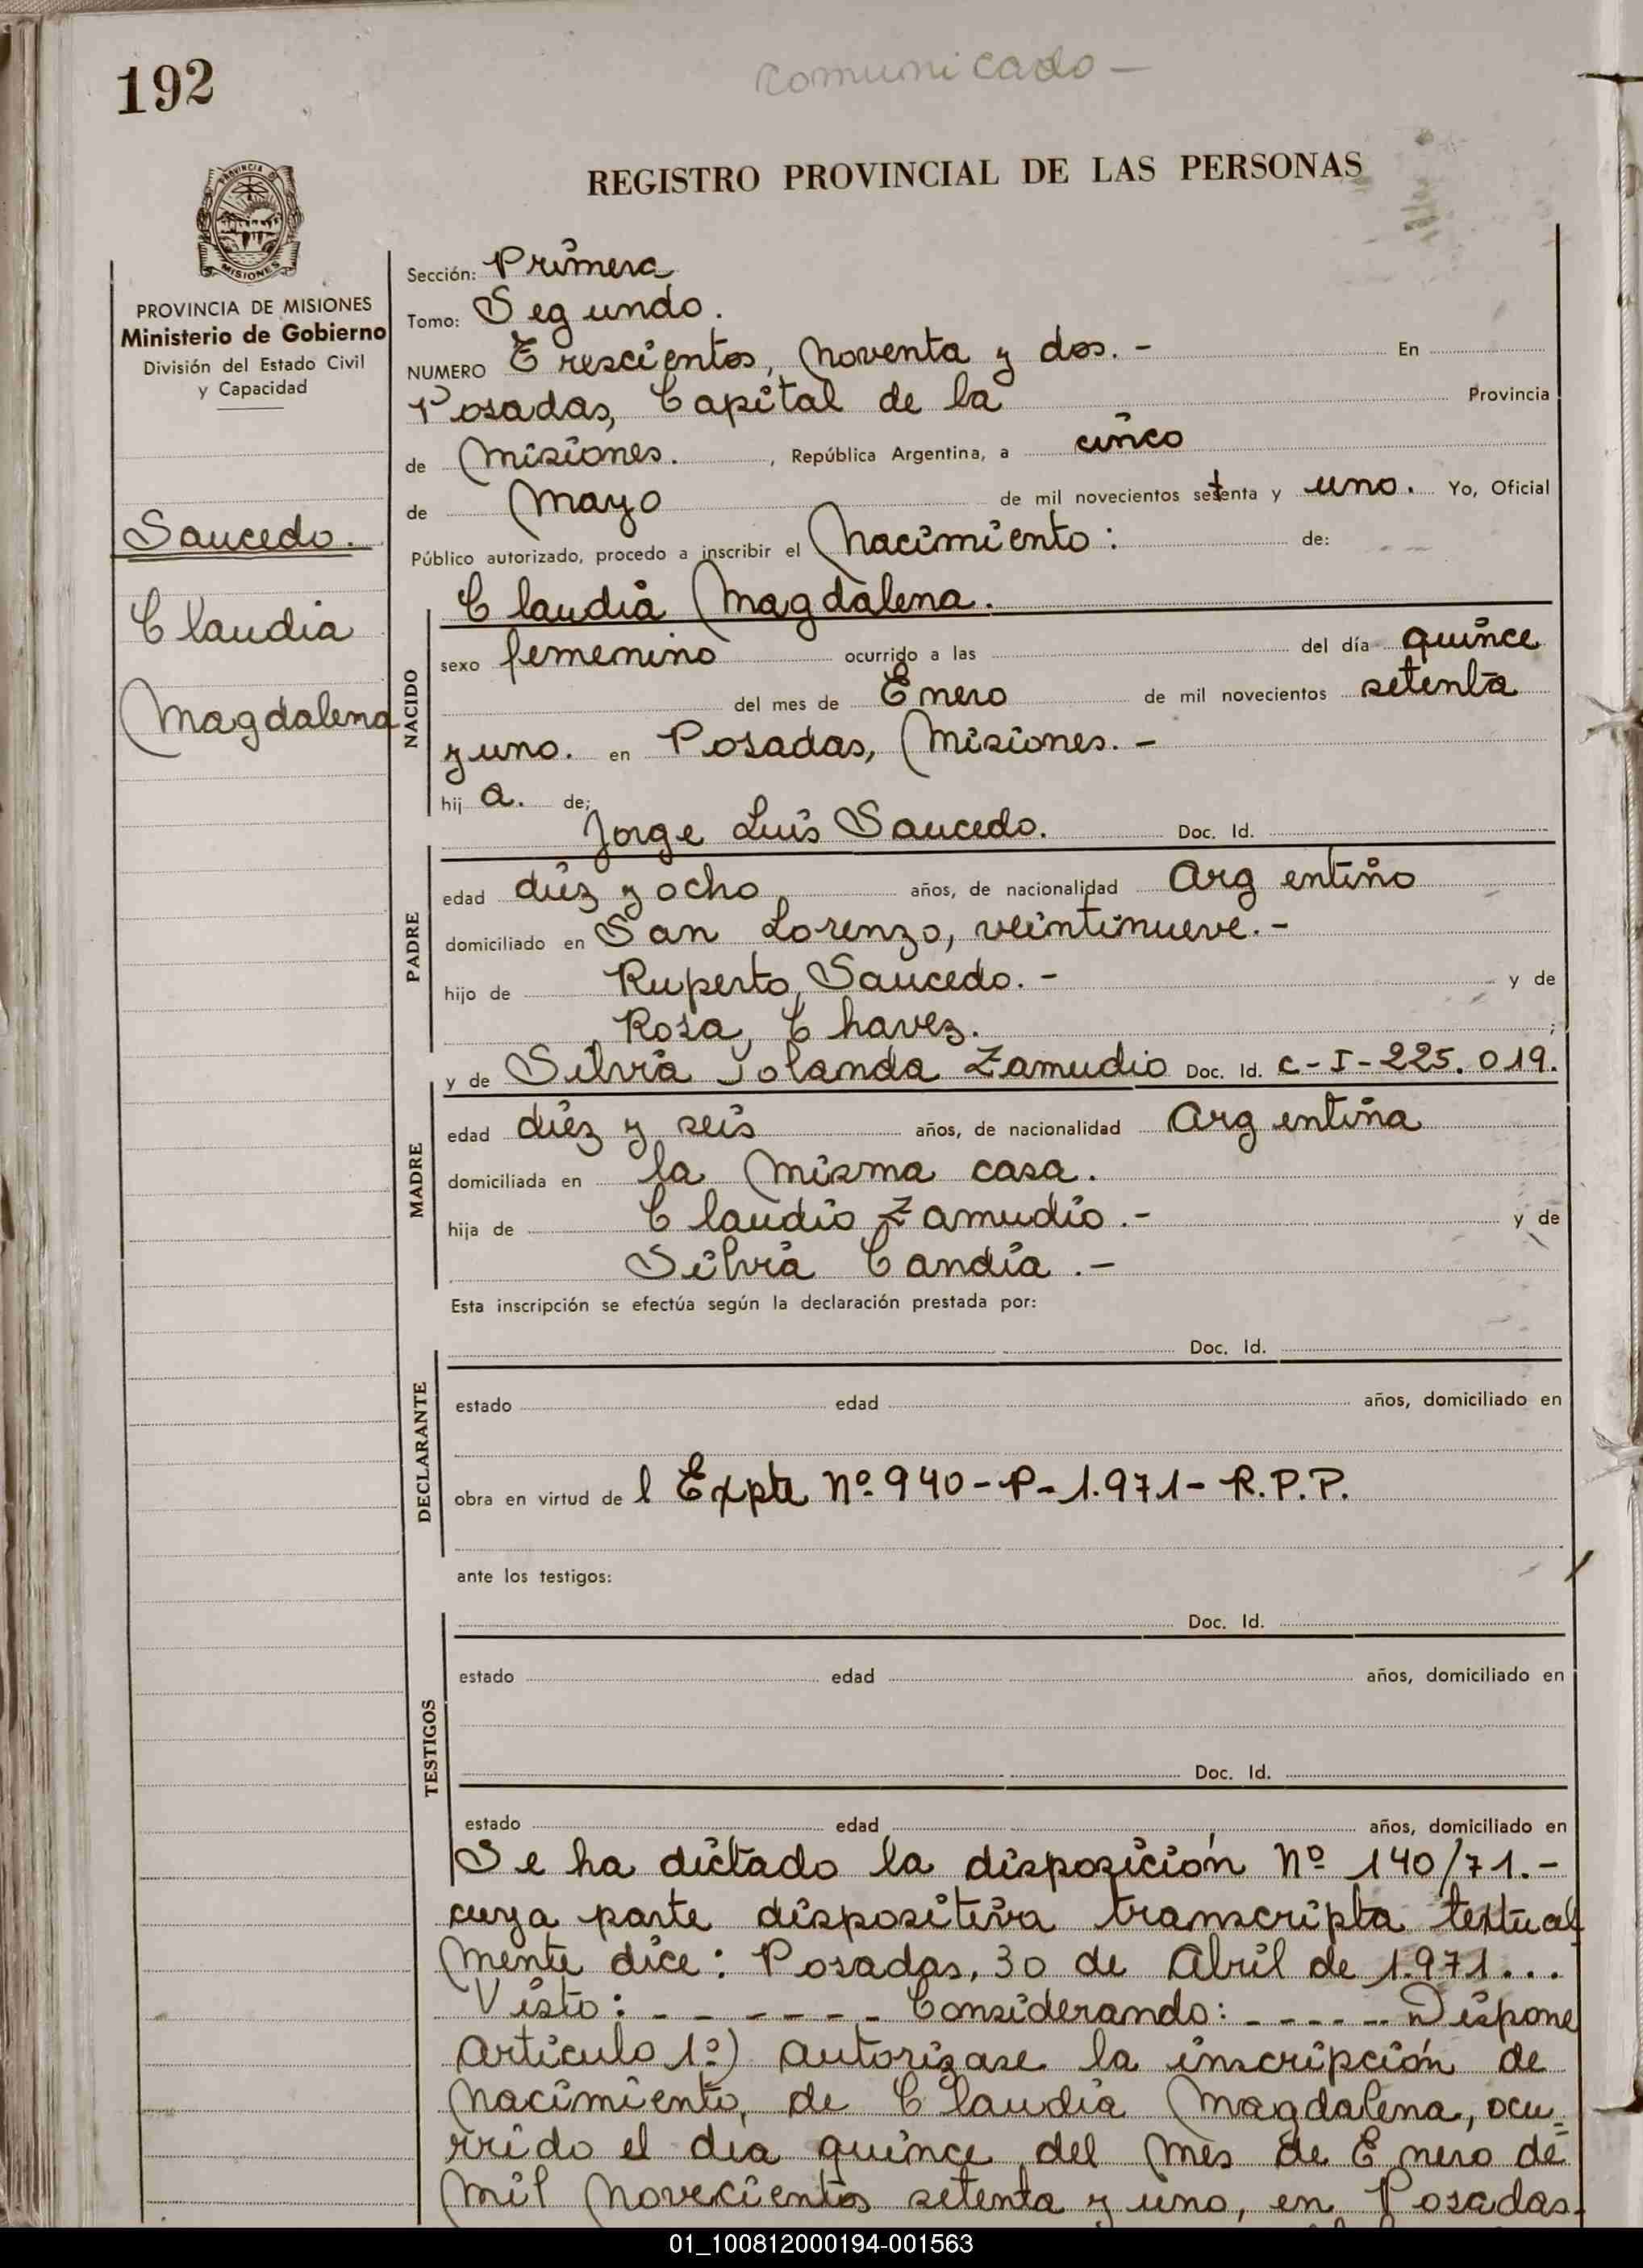 192
Comunicado -
REGISTRO PROVINCIAL DE LAS PERSONAS
PROVINCIA DE
MISIONES
PROVINCIA DE MISIONES
Ministerio de Gobierno
División del Estado Civil
y Capacidad
Saucedo.
Claudia
Magdalena
Sección: Primera
Tomo: Segundo.
NUMERO Trescientos, Noventa y dos. - En
Posadas, Capital de la Provincia
de Misiones. , República Argentina, a cinco
de Mayo de mil novecientos setenta y uno. Yo, Oficial
Público autorizado, procedo a inscribir el Nacimiento: de:
Claudia Magdalena.
NACIDO
sexo femenino ocurrido a las del día quince
del mes de Enero de mil novecientos setenta
y uno. en Posadas, Misiones. -
hij a. de;
Jorge Luis Saucedo. Doc. Id.
PADRE
edad diez y ocho años, de nacionalidad Argentino
domiciliado en San Lorenzo, veintinueve. -
hijo de Ruperto, Saucedo. - y de
Rosa, Chavez. ;
y de Silvia Iolanda Zamudio Doc. Id. C-I-225.019.
MADRE
edad diez y seis años, de nacionalidad Argentina
domiciliada en la misma casa.
hija de Claudio, Zamudio. - y de
Silvia Candia . -
Esta inscripción se efectúa según la declaración prestada por:
Doc. Id.
DECLARANTE
estado edad años, domiciliado en
obra en virtud de l Expte Nº 940-P-1.971- R.P.P.
ante los testigos:
Doc. Id.
TESTIGOS
estado edad años, domiciliado en
Doc. Id.
estado edad años, domiciliado en
Se ha dictado la disposición Nº 140/71. -
cuya parte dispositiva transcripta textual
mente dice: Posadas, 30 de Abril de 1.971...
Visto: - - - - - - - Considerando: - - - - - - Dispone
Artículo 1º) Autorizase la inscripción de
Nacimiento, de Claudia Magdalena, ocu=
rrido el dia quince del mes de Enero de
mil Novecientos setenta y uno, en Posadas.
01_100812000194-001563